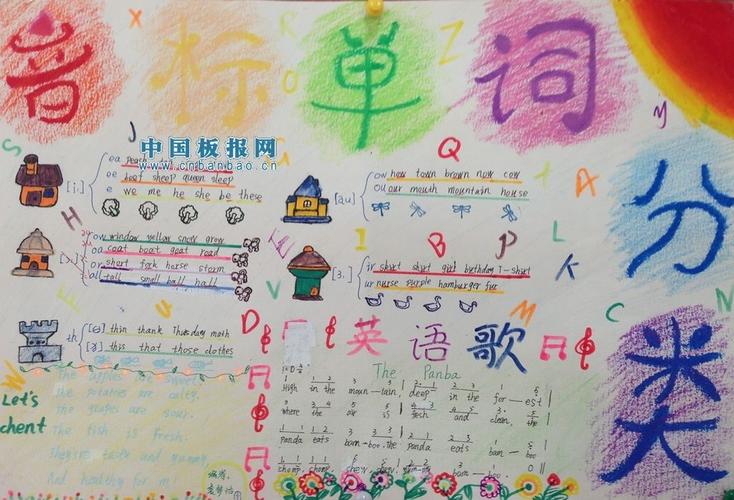 音标单词
分类
中国板报网
www.cnbanbao.cn
[i:]
ea peach
ee beef sheep queen sleep
e we me he she be these
ow window yellow snow grow
oa coat boat goat road
or short fork horse storm
all tall small ball hall
th
[θ] thin thank Thursday math
[ð] this that those clothes
[au]
ow how town brown now cow
ou our mouth mountain house
[3:]
ir skirt shirt girl birthday T-shirt
ur nurse purple hamburger fur
英语歌
The Panba
High in the moun—tain, deep in the for—est
where the air is fresh and clean, the
panda eats bam—boo. the panda eats bam—boo
chomp, chomp, chew, chew, bam—boo.
Let's
chent
The apples are sweet.
The potatoes are salty.
The grapes are sour.
The fish is fresh.
They're tasty and yummy.
And healthy for me!